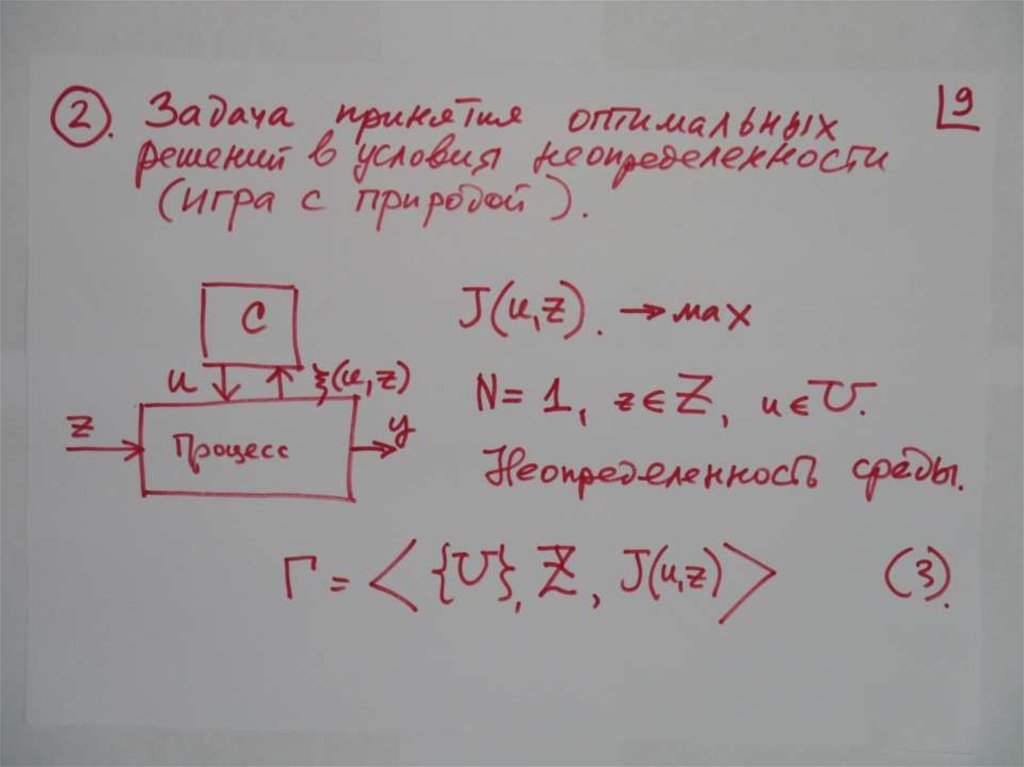 2. Задача принятия оптимальных
решений в условия неопределенности
(игра с природой).
9
C
u
ξ(u,z)
z
Процесс
y
J(u,z). → max
N = 1, z ∈ Z, u ∈ U.
Неопределенность среды.
Γ = < {U}, Z, J(u,z) > (3).